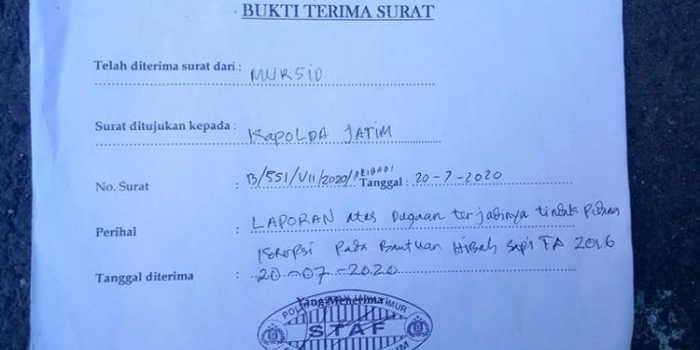 BUKTI TERIMA SURAT
Telah diterima surat dari : MURSID
Surat ditujukan kepada : KAPOLDA JATIM
No. Surat : B/551/VII/2020/PRIBADI Tanggal : 20-7-2020
Perihal : LAPORAN atas Dugaan terjadinya tindak Pidana
Korupsi Pada Bantuan Hibah Sapi TA 2016
Tanggal diterima : 20-07-2020
Yang Menerima
STAF